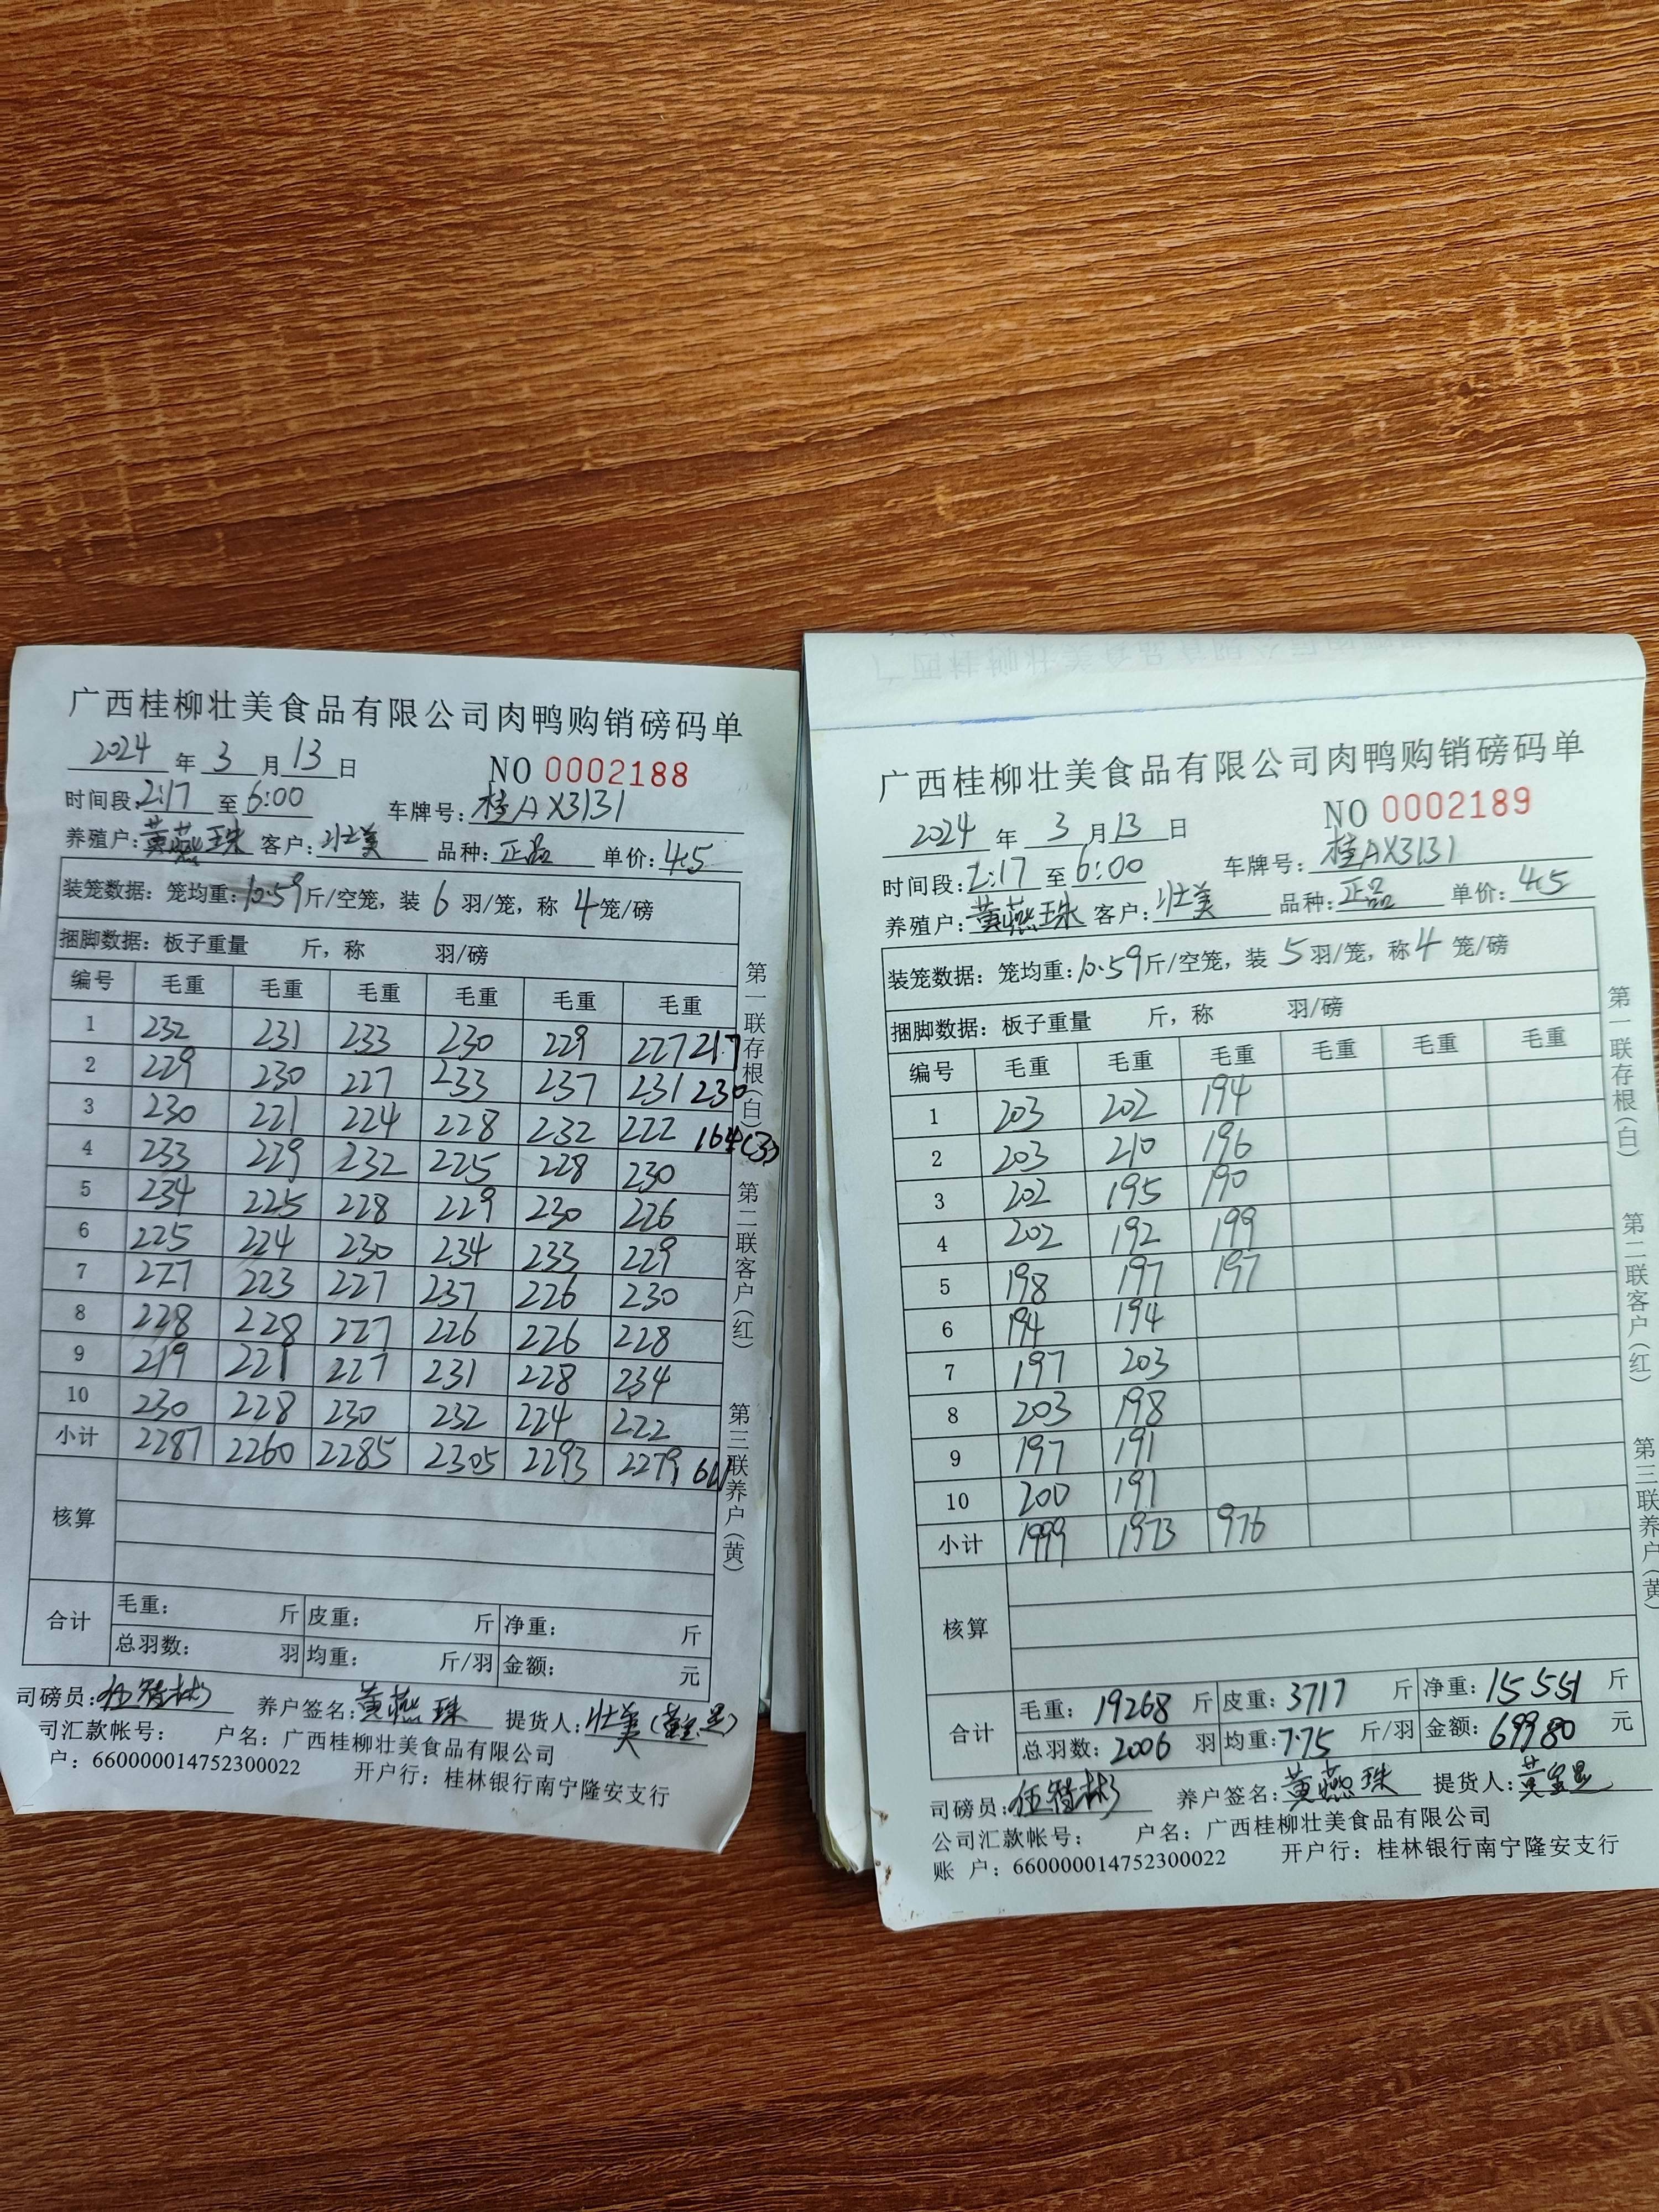 广西桂柳壮美食品有限公司肉鸭购销磅码单
2024 年 3 月 13 日 NO 0002188
时间段: 2:17 至 6:00 车牌号: 桂AX3131
养殖户: 黄燕珠 客户: 壮美 品种: 正品 单价: 4.5
装笼数据: 笼均重: 10.59 斤/空笼, 装 6 羽/笼, 称 4 笼/磅
捆脚数据: 板子重量 斤, 称 羽/磅
编号 毛重 毛重 毛重 毛重 毛重 毛重
1 232 231 233 230 229 227 217
2 229 230 227 233 237 231 230
3 230 221 224 228 232 222 164(3)
4 233 229 232 225 228 230
5 234 225 228 229 230 226
6 225 224 230 234 233 229
7 227 223 227 237 226 230
8 228 228 227 226 226 228
9 219 221 227 231 228 234
10 230 228 230 232 224 222
小计 2287 2260 2285 2305 2293 2279 611
核算
合计 毛重: 斤 皮重: 斤 净重: 斤
总羽数: 羽 均重: 斤/羽 金额: 元
司磅员: 养户签名: 黄燕珠 提货人: 壮美
司汇款帐号: 户名: 广西桂柳壮美食品有限公司
户: 660000014752300022 开户行: 桂林银行南宁隆安支行
第一联存根(白) 第二联客户(红) 第三联养户(黄)
广西桂柳壮美食品有限公司肉鸭购销磅码单
2024 年 3 月 13 日 NO 0002189
时间段: 2:17 至 6:00 车牌号: 桂AX3131
养殖户: 黄燕珠 客户: 壮美 品种: 正品 单价: 4.5
装笼数据: 笼均重: 10.59 斤/空笼, 装 5 羽/笼, 称 4 笼/磅
捆脚数据: 板子重量 斤, 称 羽/磅
编号 毛重 毛重 毛重 毛重 毛重 毛重
1 203 202 194
2 203 210 196
3 202 195 190
4 202 192 199
5 198 197 197
6 194 194
7 197 203
8 203 198
9 197 191
10 200 191
小计 1999 1973 976
核算
合计 毛重: 19268 斤 皮重: 3717 斤 净重: 15551 斤
总羽数: 2006 羽 均重: 7.75 斤/羽 金额: 69980 元
司磅员: 养户签名: 黄燕珠 提货人:
公司汇款帐号: 户名: 广西桂柳壮美食品有限公司
账 户: 660000014752300022 开户行: 桂林银行南宁隆安支行
第一联存根(白) 第二联客户(红) 第三联养户(黄)